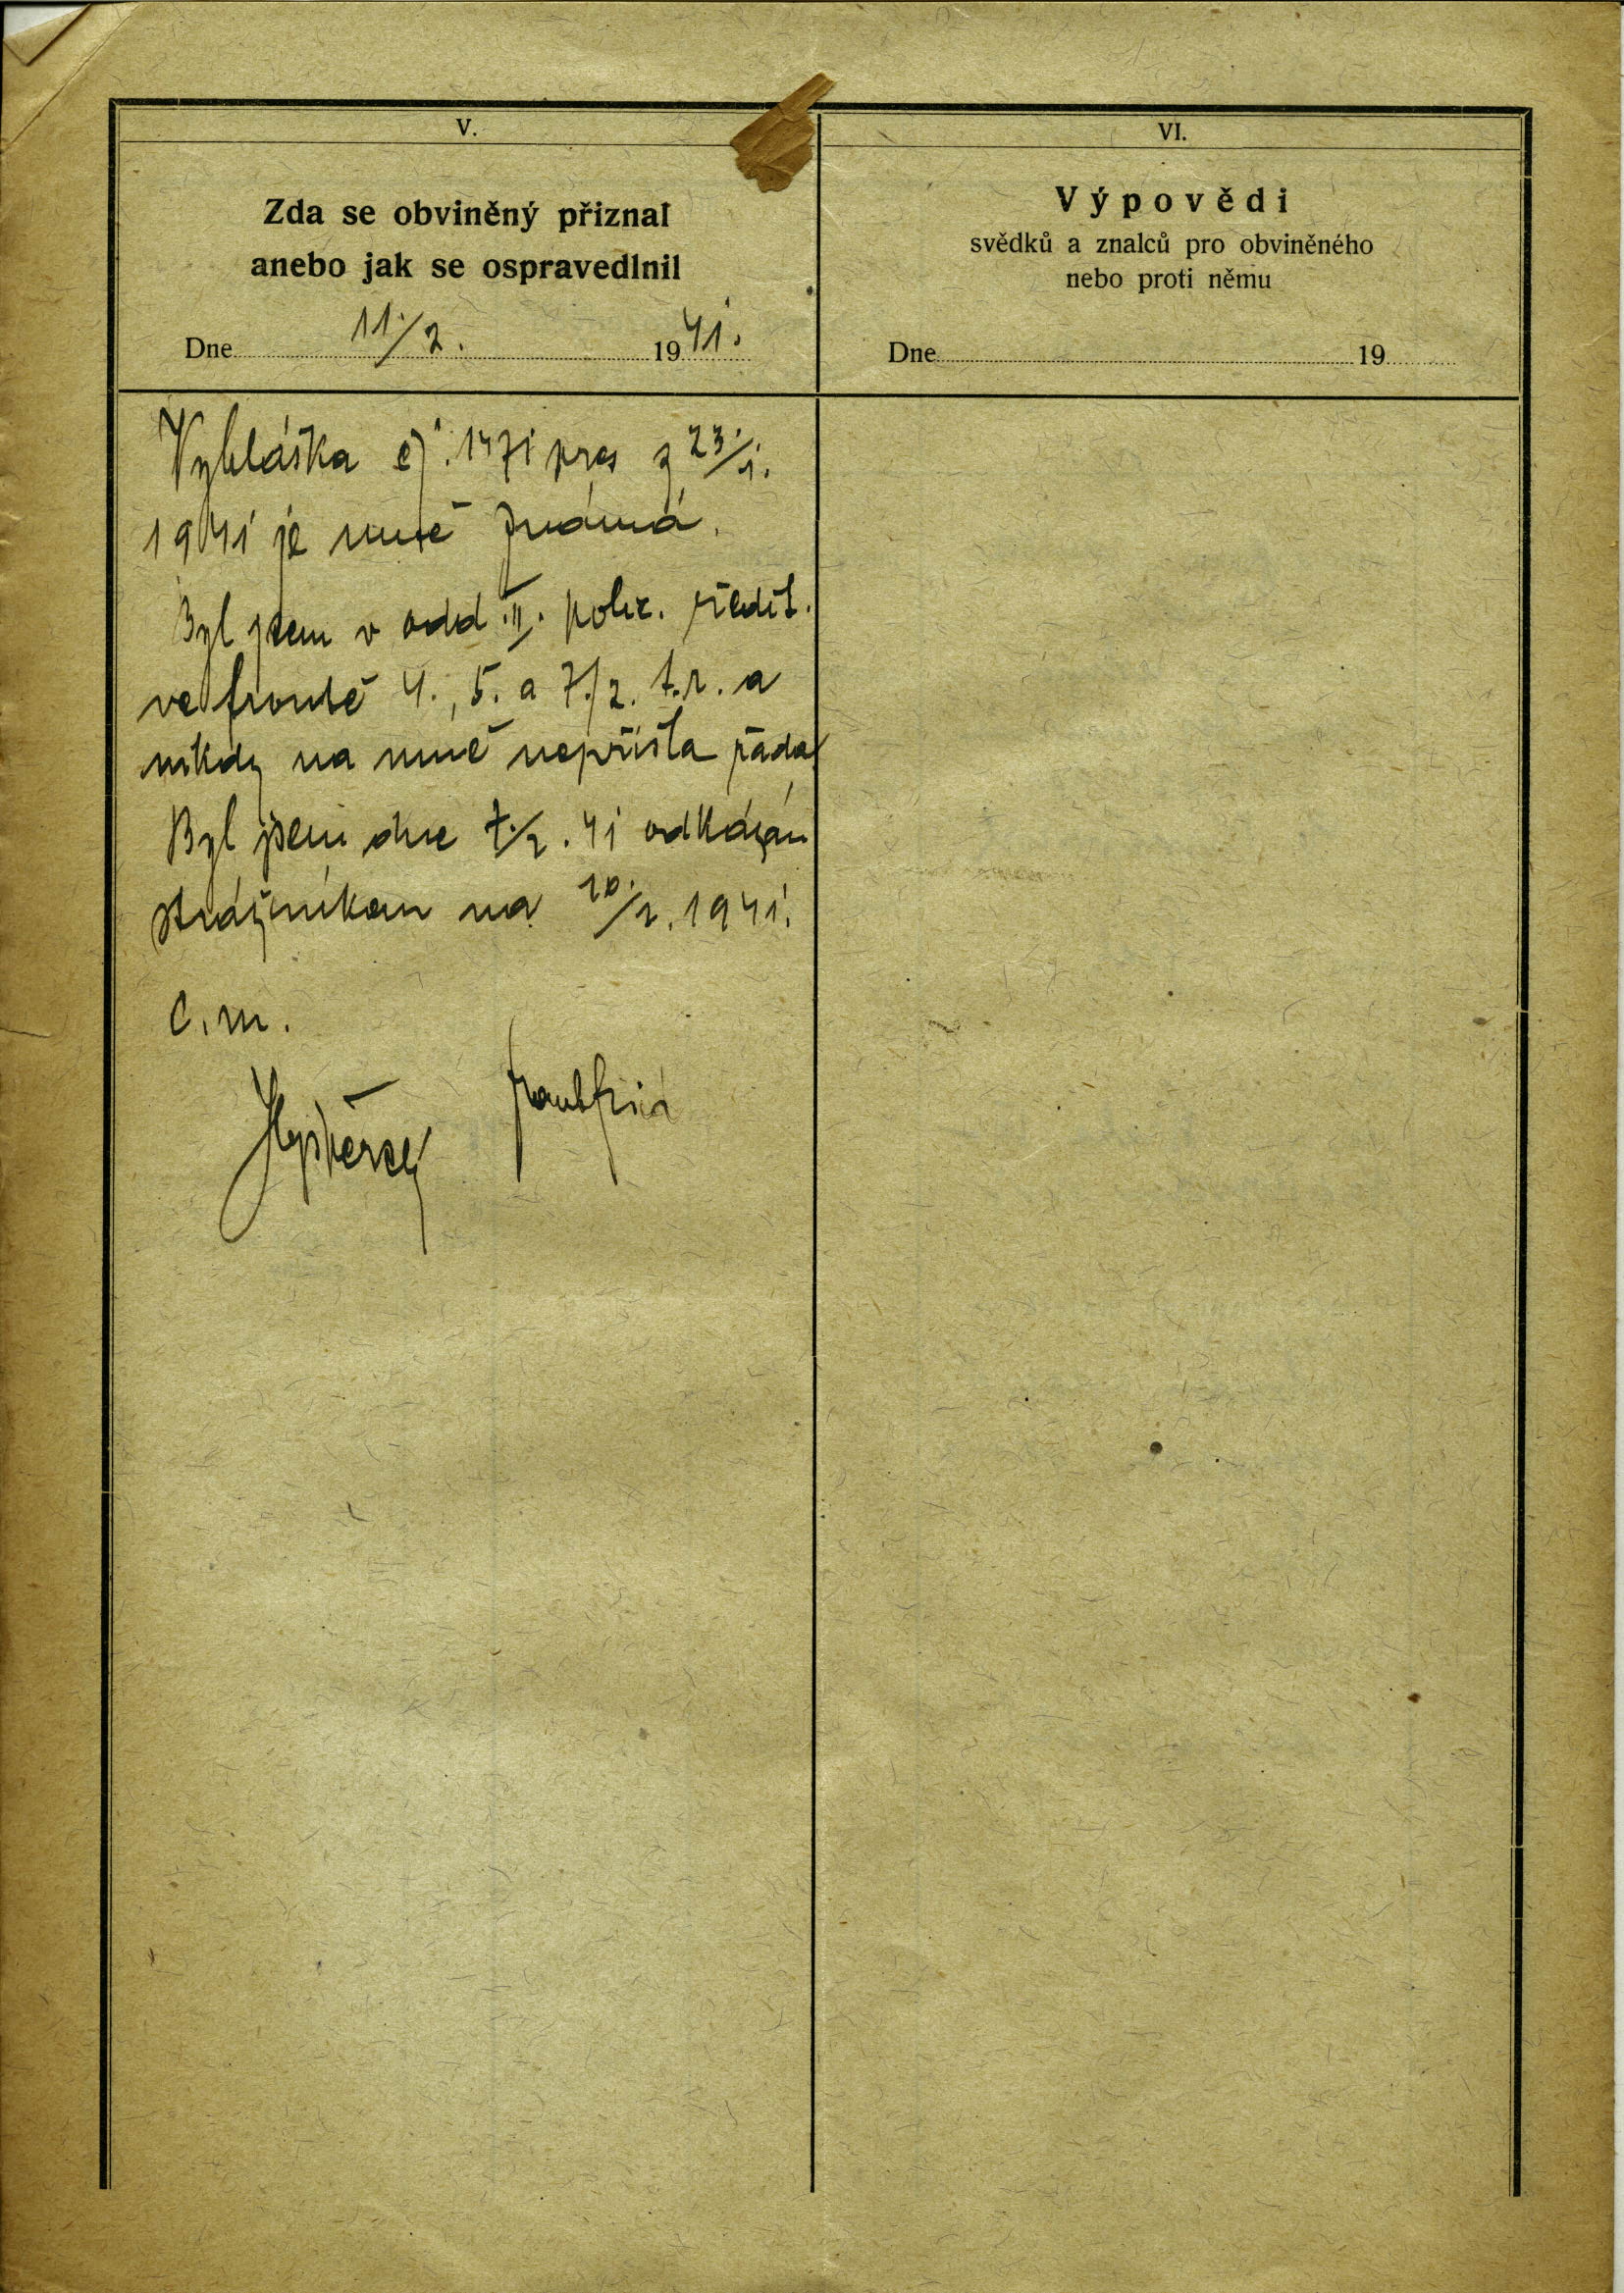 V.
Zda se obviněný přiznal
anebo jak se ospravedlnil
Dne 11./2. 1941.
Vyhláška čj. 1471 pres z 23./1.
1941 je mně známá.
Byl jsem v odd. II. polic. ředit.
ve frontě 4., 5. a 7./2. t.r. a
nikdy na mně nepřišla řada.
Byl jsem dne 7./2. 41 odkázán
strážníkem na 10./2. 1941.
VI.
Výpovědi
svědků a znalců pro obviněného
nebo proti němu
Dne 19